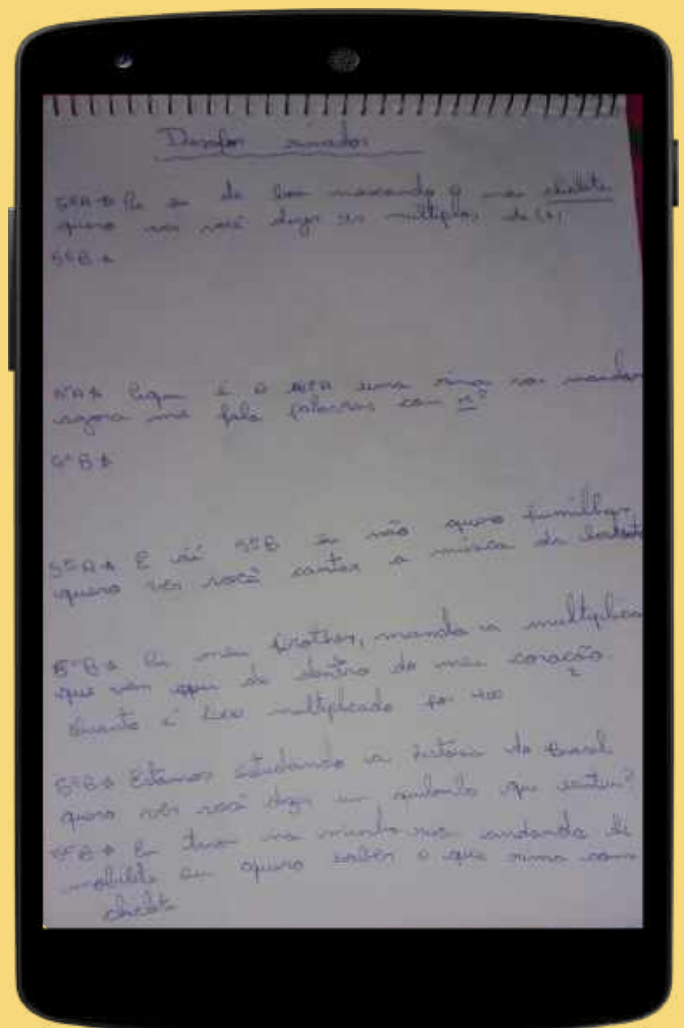 Desafios rimados
5ºA → Eu de boa mascando o meu chiclete
quero ver você dizer os múltiplos de
5ºB →
5ºA → é o uma rima vou mandar
agora me fala palavras com
5ºB →
5ºA → E aí 5ºB eu não quero
quero ver você cantar a música da
5ºB → Ei meu brother, manda a
que vem aqui de dentro do meu coração.
Quanto é multiplicado por 400
5ºB → Estamos estudando a história do Brasil
quero ver você dizer um quilombo que existiu?
5ºB → Eu tava na minha rua andando de
mobilete eu quero saber o que rima com
chiclete